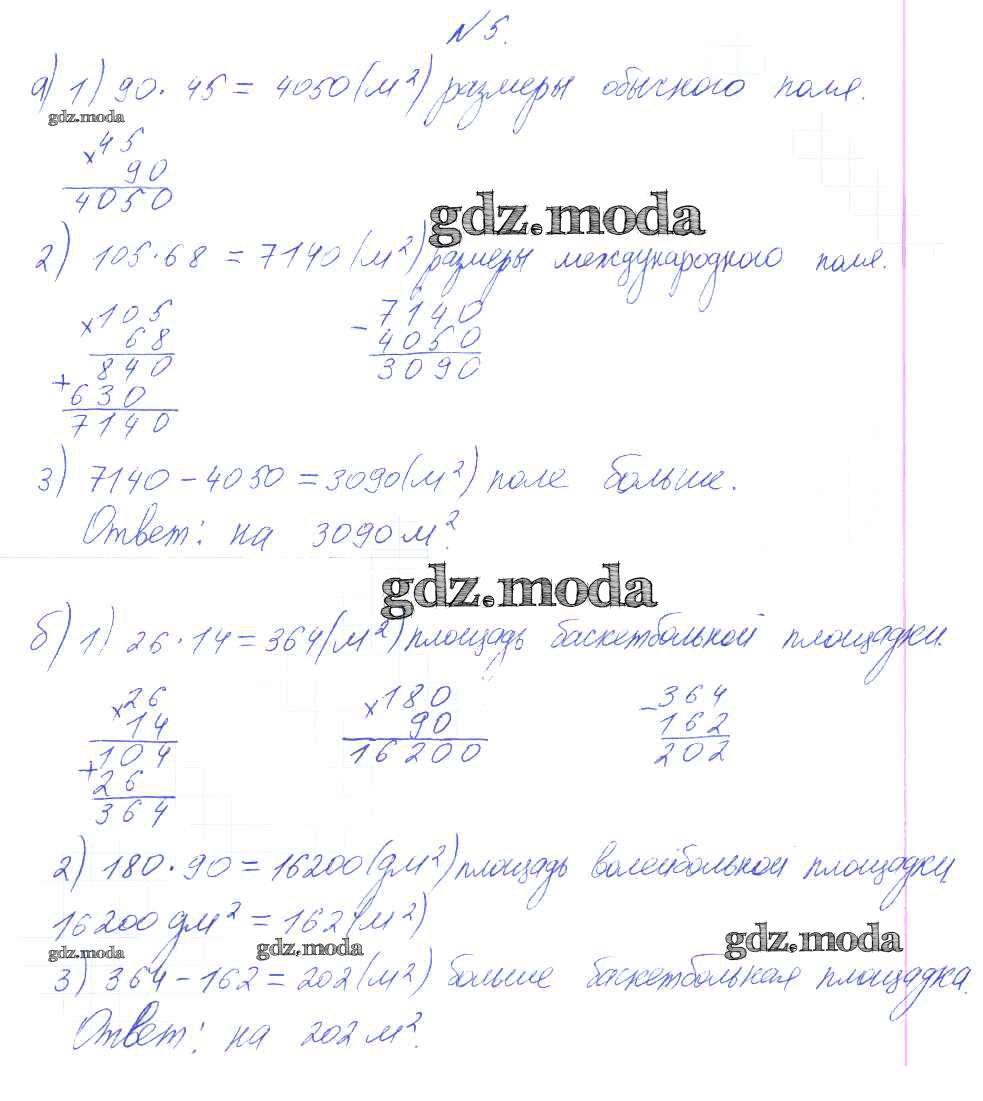 №5.
а) 1) 90 · 45 = 4050 (м²) размеры обычного поля.
gdz.moda
× 45
90
4050
gdz.moda
2) 105 · 68 = 7140 (м²) размеры международного поля.
× 105
68
840
+ 630
7140
− 7140
4050
3090
3) 7140 − 4050 = 3090 (м²) поле больше.
Ответ: на 3090 м².
gdz.moda
б) 1) 26 · 14 = 364 (м²) площадь баскетбольной площадки.
× 26
14
104
+ 26
364
× 180
90
16200
− 364
162
202
2) 180 · 90 = 16200 (дм²) площадь волейбольной площадки
16200 дм² = 162 (м²)
gdz.moda
gdz.moda
gdz.moda
3) 364 − 162 = 202 (м²) больше баскетбольная площадка.
Ответ: на 202 м².